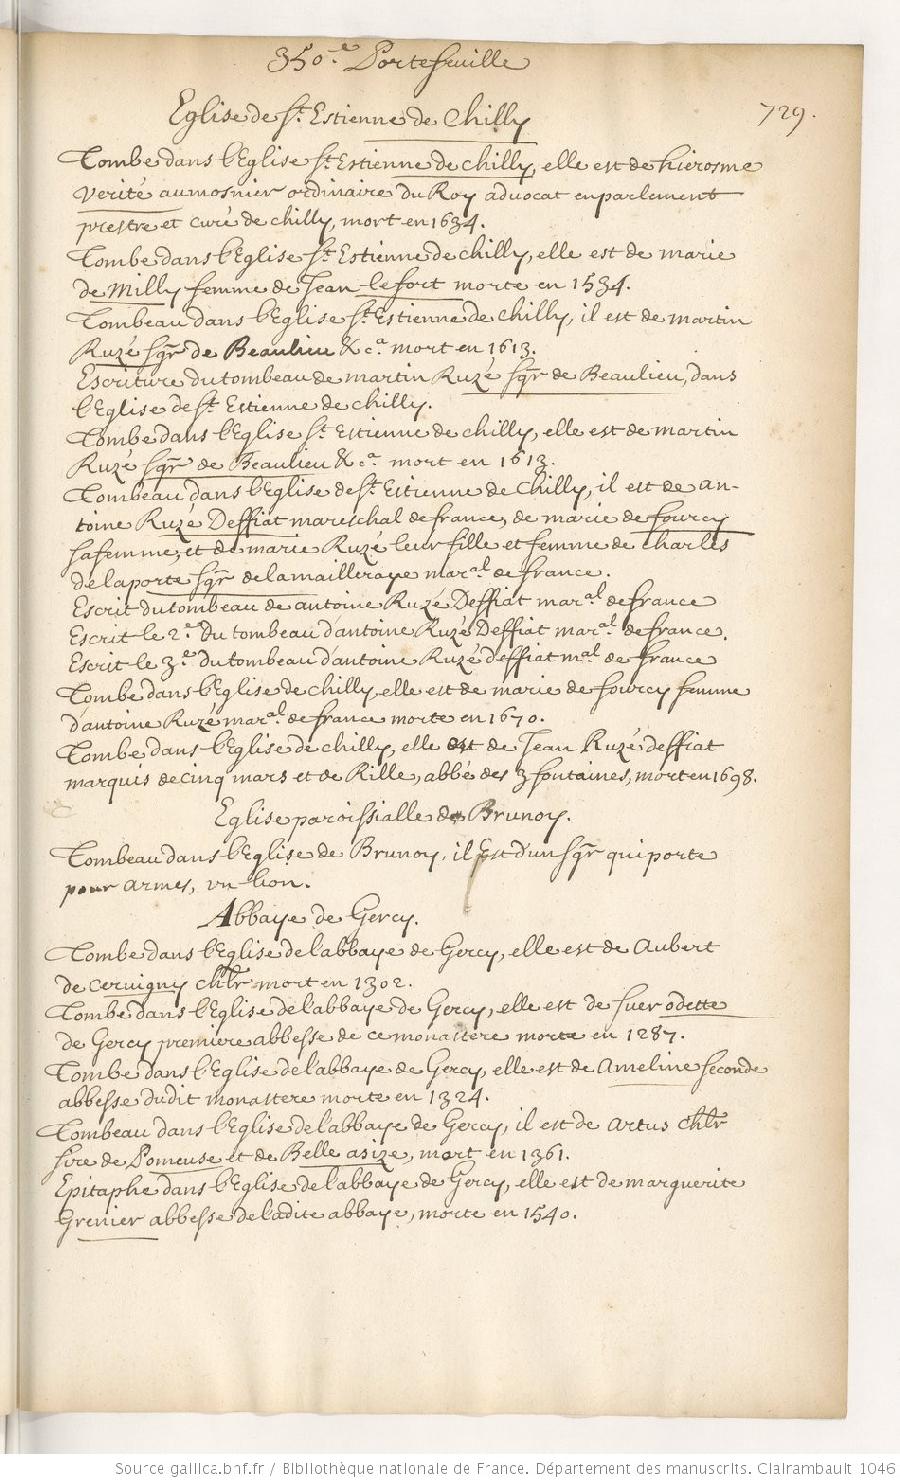 350.e Portefeuille
729.
Eglise de St. Estienne de Chilly
Tombe dans l'Eglise St. Estienne de chilly, elle est de hierosme
Verité aumosnier ordinaire du Roy advocat en parlement
prestre et curé de chilly, mort en 1634.
Tombe dans l'Eglise St. Estienne de chilly, elle est de marie
de Milly femme de Jean le fort morte en 1534.
Tombeau dans l'Eglise St. Estienne de chilly, il est de martin
Ruzé sgr. de Beaulieu &c.a mort en 1613.
Escriture du tombeau de martin Ruzé sgr. de Beaulieu, dans
l'Eglise de St. Estienne de chilly.
Tombe dans l'Eglise St. Estienne de chilly, elle est de martin
Ruzé sgr. de Beaulieu &c.a mort en 1613.
Tombeau dans l'Eglise de St. Estienne de Chilly, il est de an-
toine Ruzé Deffiat mareschal de france, de marie de fourcy
sa femme, et de marie Ruzé leur fille et femme de charles
de la porte sgr. de la mailleraye mar.al de france.
Escrit du tombeau de antoine Ruzé Deffiat mar.al de france
Escrit le 2.e du tombeau d'antoine Ruzé Deffiat mar.al de france.
Escrit le 3.e du tombeau d'antoine Ruzé deffiat m.al de france
Tombe dans l'Eglise de chilly, elle est de marie de fourcy femme
d'antoine Ruzé mar.al de france morte en 1670.
Tombe dans l'Eglise de chilly, elle est de Jean Ruzé deffiat
marquis de cinq mars et de Rille, abbé des 3 fontaines, mort en 1698.
Eglise paroissialle de Brunoy.
Tombeau dans l'Eglise de Brunoy, il est d'un sgr. qui porte
pour armes, un lion.
Abbaye de Gercy.
Tombe dans l'Eglise de l'abbaye de Gercy, elle est de Aubert
de cervigny chlr mort en 1302.
Tombe dans l'Eglise de l'abbaye de Gercy, elle est de suer odette
de Gercy premiere abbesse de ce monastere morte en 1287.
Tombe dans l'Eglise de l'abbaye de Gercy, elle est de Ameline seconde
abbesse dudit monastere morte en 1324.
Tombeau dans l'Eglise de l'abbaye de Gercy, il est de Artus chlr
sire de Pomeuse et de Belle asize, mort en 1361.
Epitaphe dans l'Eglise de l'abbaye de Gercy, elle est de marguerite
Grenier abbesse de ladite abbaye, morte en 1540.
Source gallica.bnf.fr / Bibliothèque nationale de France. Département des manuscrits. Clairambault 1046